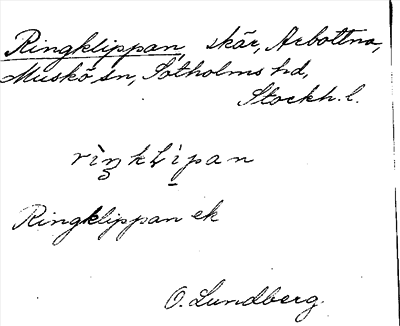 Ringklippan, skär, Arbottna,
Muskö sn, Sotholms hd,
Stockh. l.
rìŋkḷìpan
Ringklippan ek
O. Lundberg.